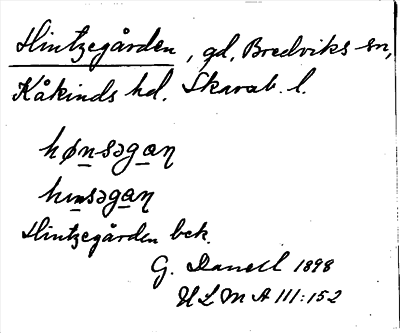 Hintzegården, gd, Bredviks sn,
Kåkinds hd. Skarab. l.
hønsəgaɳ
hınsəgaɳ
Hintzegården bek.
G. Danell 1898
ULMA 111:152